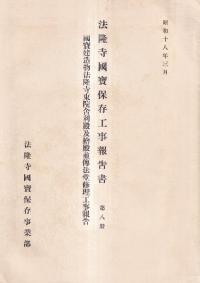 昭和十八年三月
法隆寺國寶保存工事報告書
第八冊
國寶建造物法隆寺東院舍利殿及繪殿並傳法堂修理工事報告
法隆寺國寶保存事業部